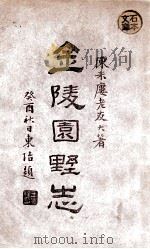 陳
老友大著
金陵園墅志
癸酉秋日東培題